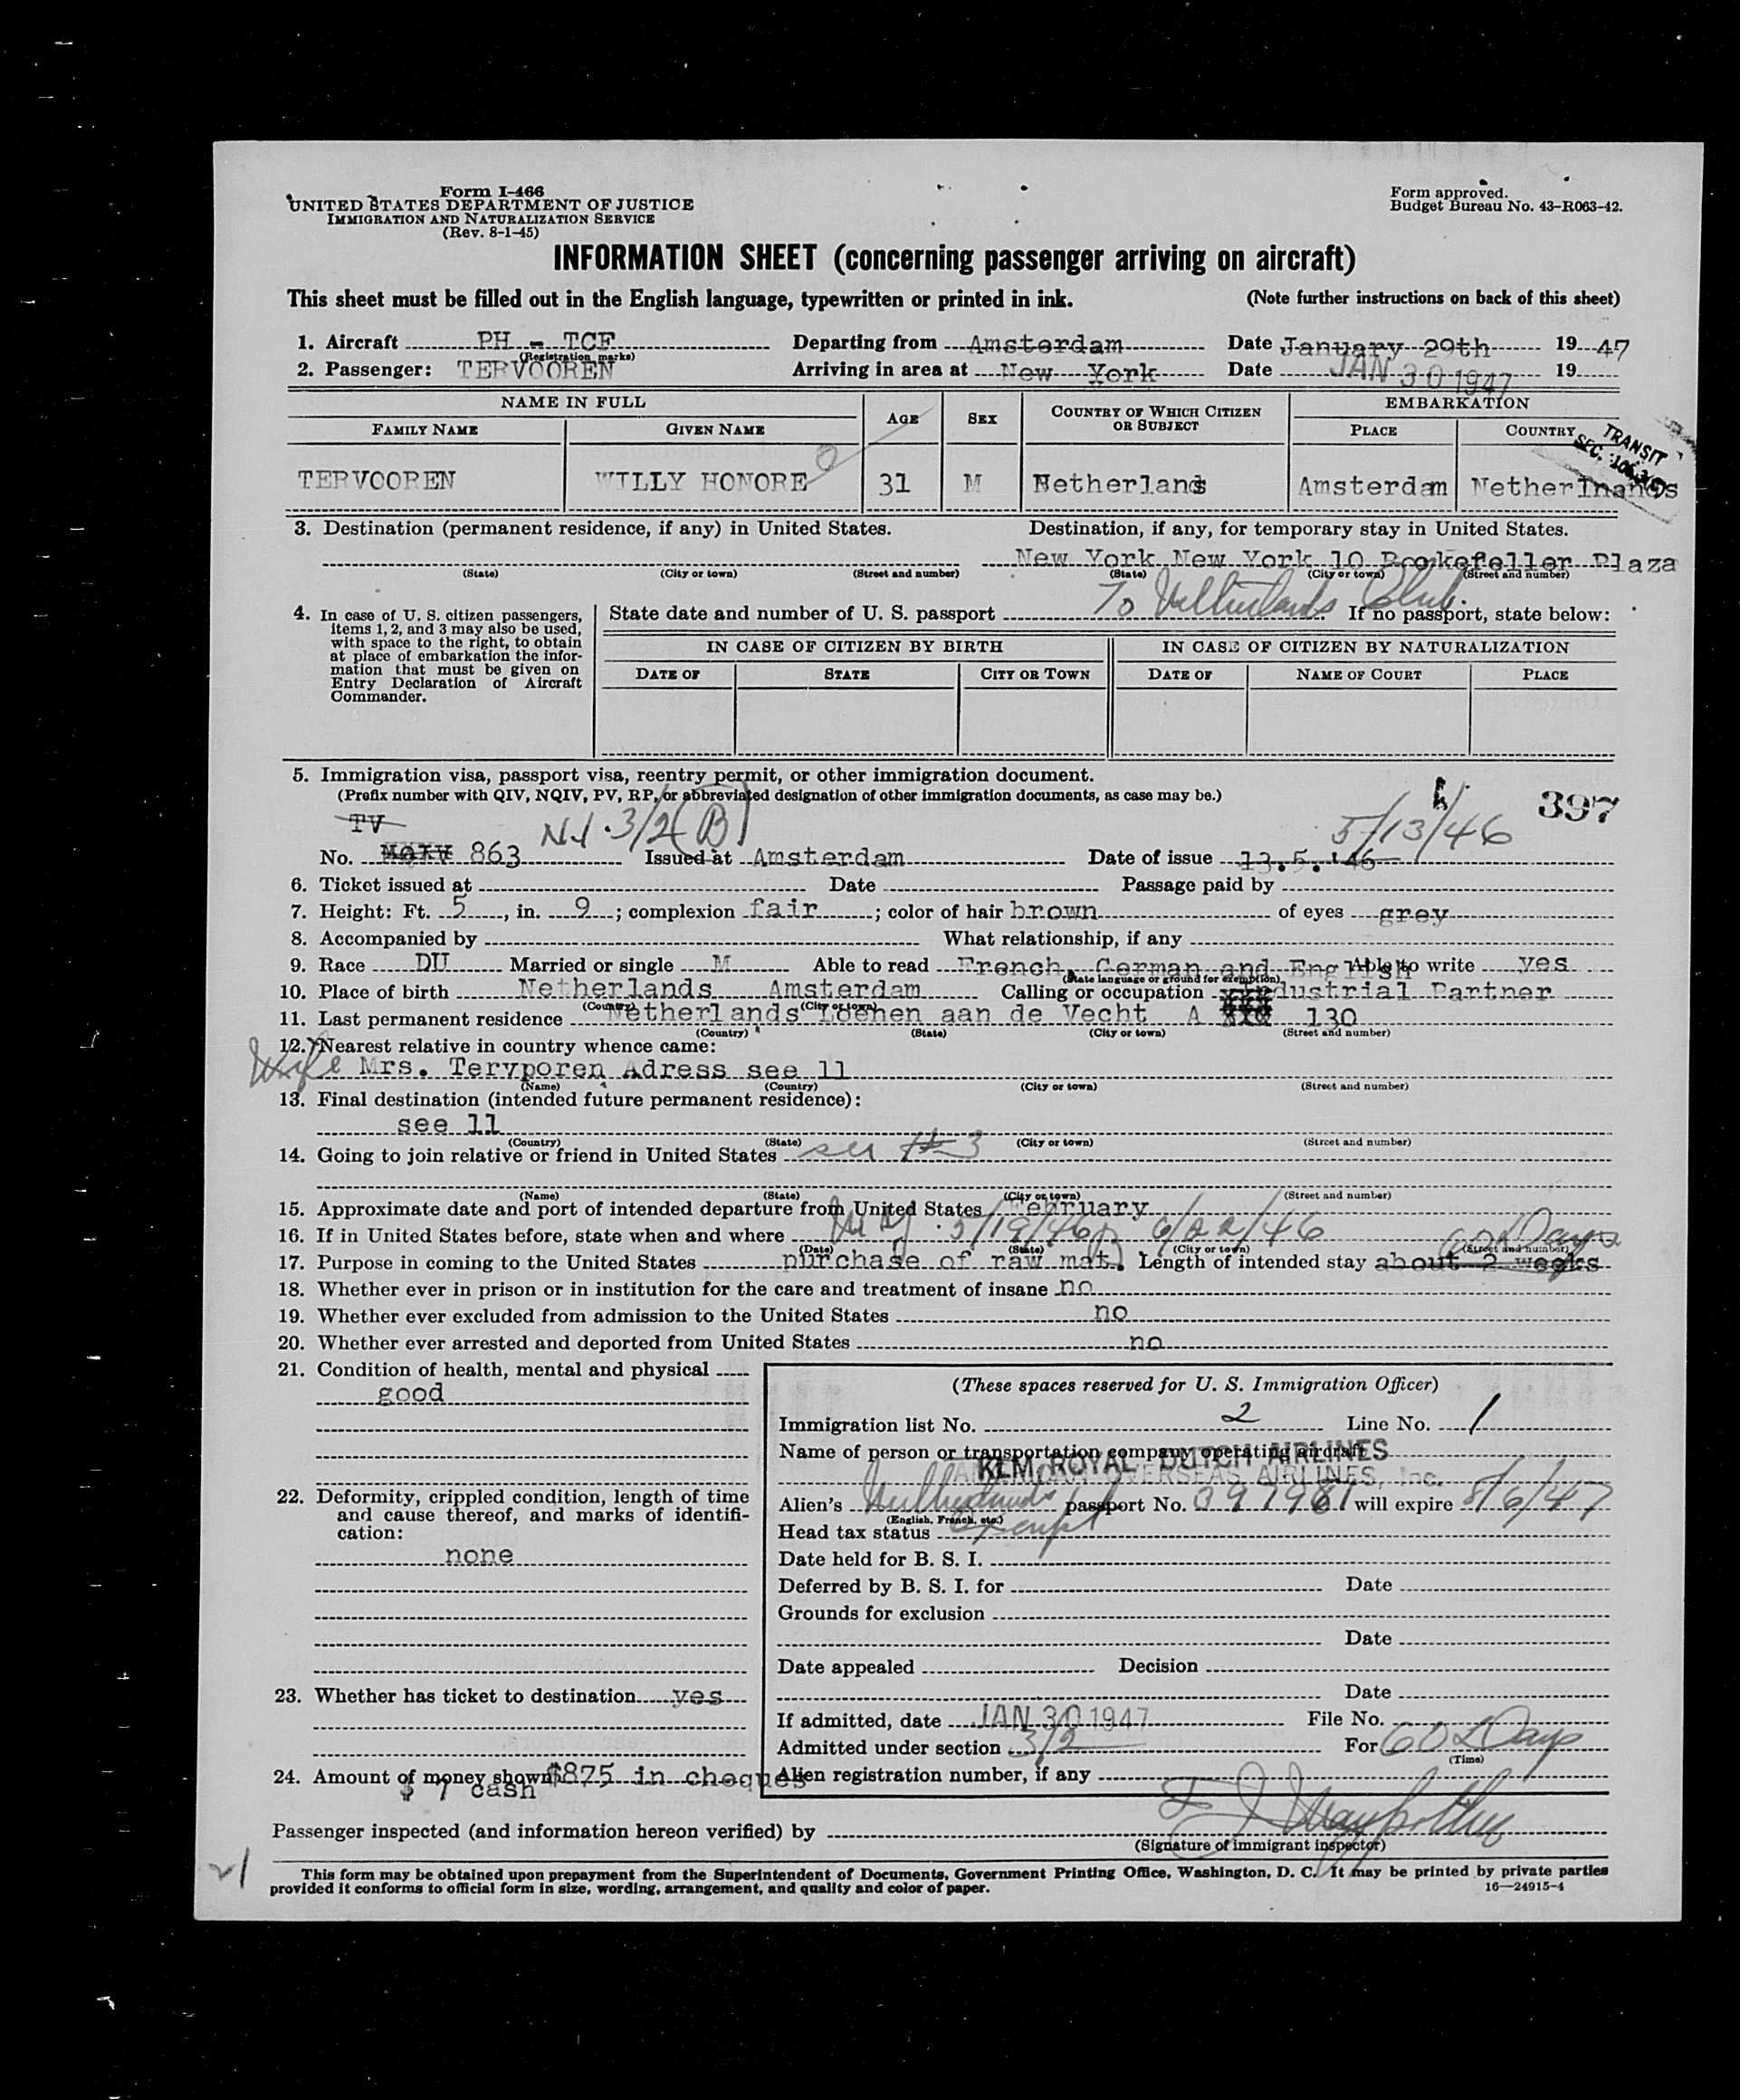 Form I-466
UNITED STATES DEPARTMENT OF JUSTICE
IMMIGRATION AND NATURALIZATION SERVICE
(Rev. 8-1-45)
Form approved.
Budget Bureau No. 43-R063-42.
INFORMATION SHEET (concerning passenger arriving on aircraft)
This sheet must be filled out in the English language, typewritten or printed in ink. (Note further instructions on back of this sheet)
1. Aircraft PH - TCF Departing from Amsterdam Date January 29th 1947
(Registration marks)
2. Passenger: TERVOOREN Arriving in area at New York Date JAN 30 1947 19
NAME IN FULL AGE SEX COUNTRY OF WHICH CITIZEN OR SUBJECT EMBARKATION
FAMILY NAME GIVEN NAME PLACE COUNTRY
TRANSIT
SEC.
TERVOOREN WILLY HONORE 31 M Netherlands Amsterdam Netherlnands
3. Destination (permanent residence, if any) in United States. Destination, if any, for temporary stay in United States.
New York New York 10 Rockefeller Plaza
(State) (City or town) (Street and number) (State) (City or town) (Street and number)
To Netherlands Club.
4. In case of U. S. citizen passengers, items 1, 2, and 3 may also be used, with space to the right, to obtain at place of embarkation the information that must be given on Entry Declaration of Aircraft Commander.
State date and number of U. S. passport If no passport, state below:
IN CASE OF CITIZEN BY BIRTH IN CASE OF CITIZEN BY NATURALIZATION
DATE OF STATE CITY OR TOWN DATE OF NAME OF COURT PLACE
5. Immigration visa, passport visa, reentry permit, or other immigration document.
(Prefix number with QIV, NQIV, PV, RP, or abbreviated designation of other immigration documents, as case may be.)
397
TV 3/2(B) 5/13/46
No. 863 Issued at Amsterdam Date of issue 13.5.'46
6. Ticket issued at Date Passage paid by
7. Height: Ft. 5, in. 9; complexion fair; color of hair brown of eyes grey
8. Accompanied by What relationship, if any
9. Race DU Married or single M Able to read French, German and English Able to write yes
(State language or ground for exemption)
10. Place of birth Netherlands Amsterdam Calling or occupation Industrial Partner
(Country) (City or town)
11. Last permanent residence Netherlands Loenen aan de Vecht A 130
(Country) (State) (City or town) (Street and number)
12. Nearest relative in country whence came:
Wife Mrs. Tervporen Adress see 11
(Name) (Country) (City or town) (Street and number)
13. Final destination (intended future permanent residence):
see 11
(Country) (State) (City or town) (Street and number)
14. Going to join relative or friend in United States see #3
(Name) (State) (City or town) (Street and number)
15. Approximate date and port of intended departure from United States February
16. If in United States before, state when and where 5/19/46 6/22/46
(Date) (State) (City or town) (Street and number)
60 Days
17. Purpose in coming to the United States purchase of raw mat. Length of intended stay about 2 weeks
18. Whether ever in prison or in institution for the care and treatment of insane no
19. Whether ever excluded from admission to the United States no
20. Whether ever arrested and deported from United States no
21. Condition of health, mental and physical
good
22. Deformity, crippled condition, length of time and cause thereof, and marks of identification:
none
23. Whether has ticket to destination yes
24. Amount of money shown $875 in cheques
$ 7 cash
(These spaces reserved for U. S. Immigration Officer)
Immigration list No. 2 Line No. 1
Name of person or transportation company operating aircraft
KLM ROYAL DUTCH AIRLINES
OVERSEAS AIRLINES, Inc.
Alien's Netherlands passport No. 097981 will expire 8/6/47
(English, French, etc.)
Head tax status exempt
Date held for B. S. I.
Deferred by B. S. I. for Date
Grounds for exclusion
Date
Date appealed Decision
Date
If admitted, date JAN 30 1947 File No.
Admitted under section 3/2 For 60 Days
(Time)
Alien registration number, if any
Passenger inspected (and information hereon verified) by
(Signature of immigrant inspector)
This form may be obtained upon prepayment from the Superintendent of Documents, Government Printing Office, Washington, D. C. It may be printed by private parties
provided it conforms to official form in size, wording, arrangement, and quality and color of paper.
16—24915-4